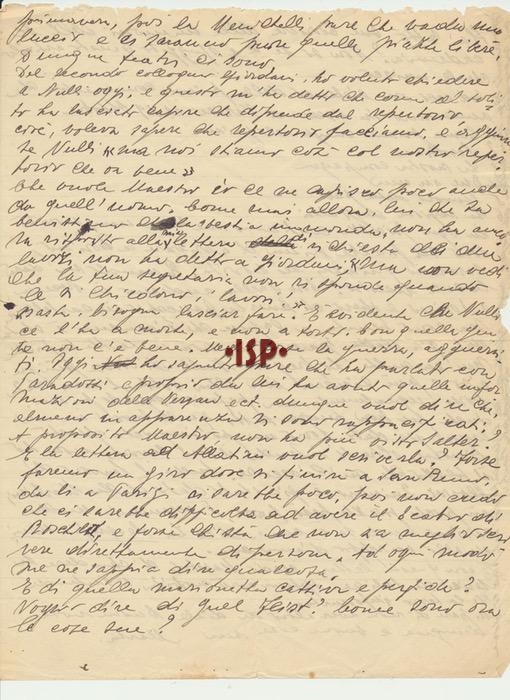 poi la Menichelli pure che vada
e ci saranno pure quelle piazze libere.
Dunque teatri ci sono.
Del secondo colloquio Giordani, ho voluto chiedere
a Nulli oggi, e questo m'ha detto che come al soli-
to ha lasciato capire che dipende dal repertorio
cioè, voleva sapere che repertorio facciamo, e
Nulli "ma noi stiamo così col nostro reper-
torio che va bene"
Che vuole Maestro io ce ne capisco poco anche
da quell'uomo. Come mai allora, lui che sa
benissimo la bestia immonda, non ha
risposto alla mia lettera richiesta dei diu
lavori non ha detto a Giordani, "Ma non vede
che la sua segretaria non ci risponde quando
le si chiedono i lavori!"
Basta. Bisogna lasciar fare. È evidente che Nulli
ce l'ha a morte, e non a torto. Con quella gen-
te non c'è bene. la guerra, agguerri-
ti. Oggi ho saputo che ha parlato con
Paradossi e proprio da lui ha avuto quelle infor-
mazioni della Vergani ect. dunque vuol dire che,
almeno in apparenza si sono rappacificati?
A proposito Maestro, non ha più visto Salter?
E la lettera ad Allatini vuol scriverla? Forse
faremo un giro dove si finirà a San Remo,
da lì a Parigi ci sarebbe poco, poi non credo
che ci sarebbe difficoltà ad avere il teatro di
e forse chissà che non sia meglio scri-
vere direttamente di persona. Ad ogni modo
me ne sappia dire qualcosa.
E di quella marionetta cattiva e perfida?
Voglio dire di quel Feist? Come sono ora
le cose sue?
ISP